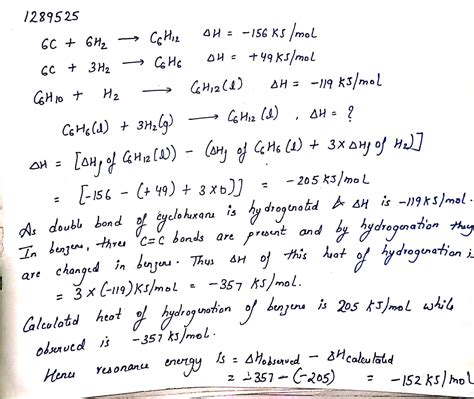 1289525
6C + 6H₂ → C₆H₁₂ ΔH = -156 KJ/mol
6C + 3H₂ → C₆H₆ ΔH = +49 KJ/mol
C₆H₁₀ + H₂ → C₆H₁₂(l) ΔH = -119 KJ/mol
C₆H₆(l) + 3H₂(g) → C₆H₁₂(l), ΔH = ?
ΔH = [ΔHf of C₆H₁₂(l) - (ΔHf of C₆H₆(l) + 3×ΔHf of H₂)]
= [-156 - (+49) + 3×0)] = -205 KJ/mol
As double bond of cyclohexane is hydrogenated & ΔH is -119KJ/mol.
In benzene, three C=C bonds are present and by hydrogenation they
are changed in benzene. Thus ΔH of this heat of hydrogenation is
= 3×(-119)KJ/mol = -357 KJ/mol.
Calculated heat of hydrogenation of benzene is 205 KJ/mol while
observed is -357 KJ/mol.
Hence resonance energy is = ΔHobserved - ΔHcalculated
= -357 - (-205) = -152 KJ/mol